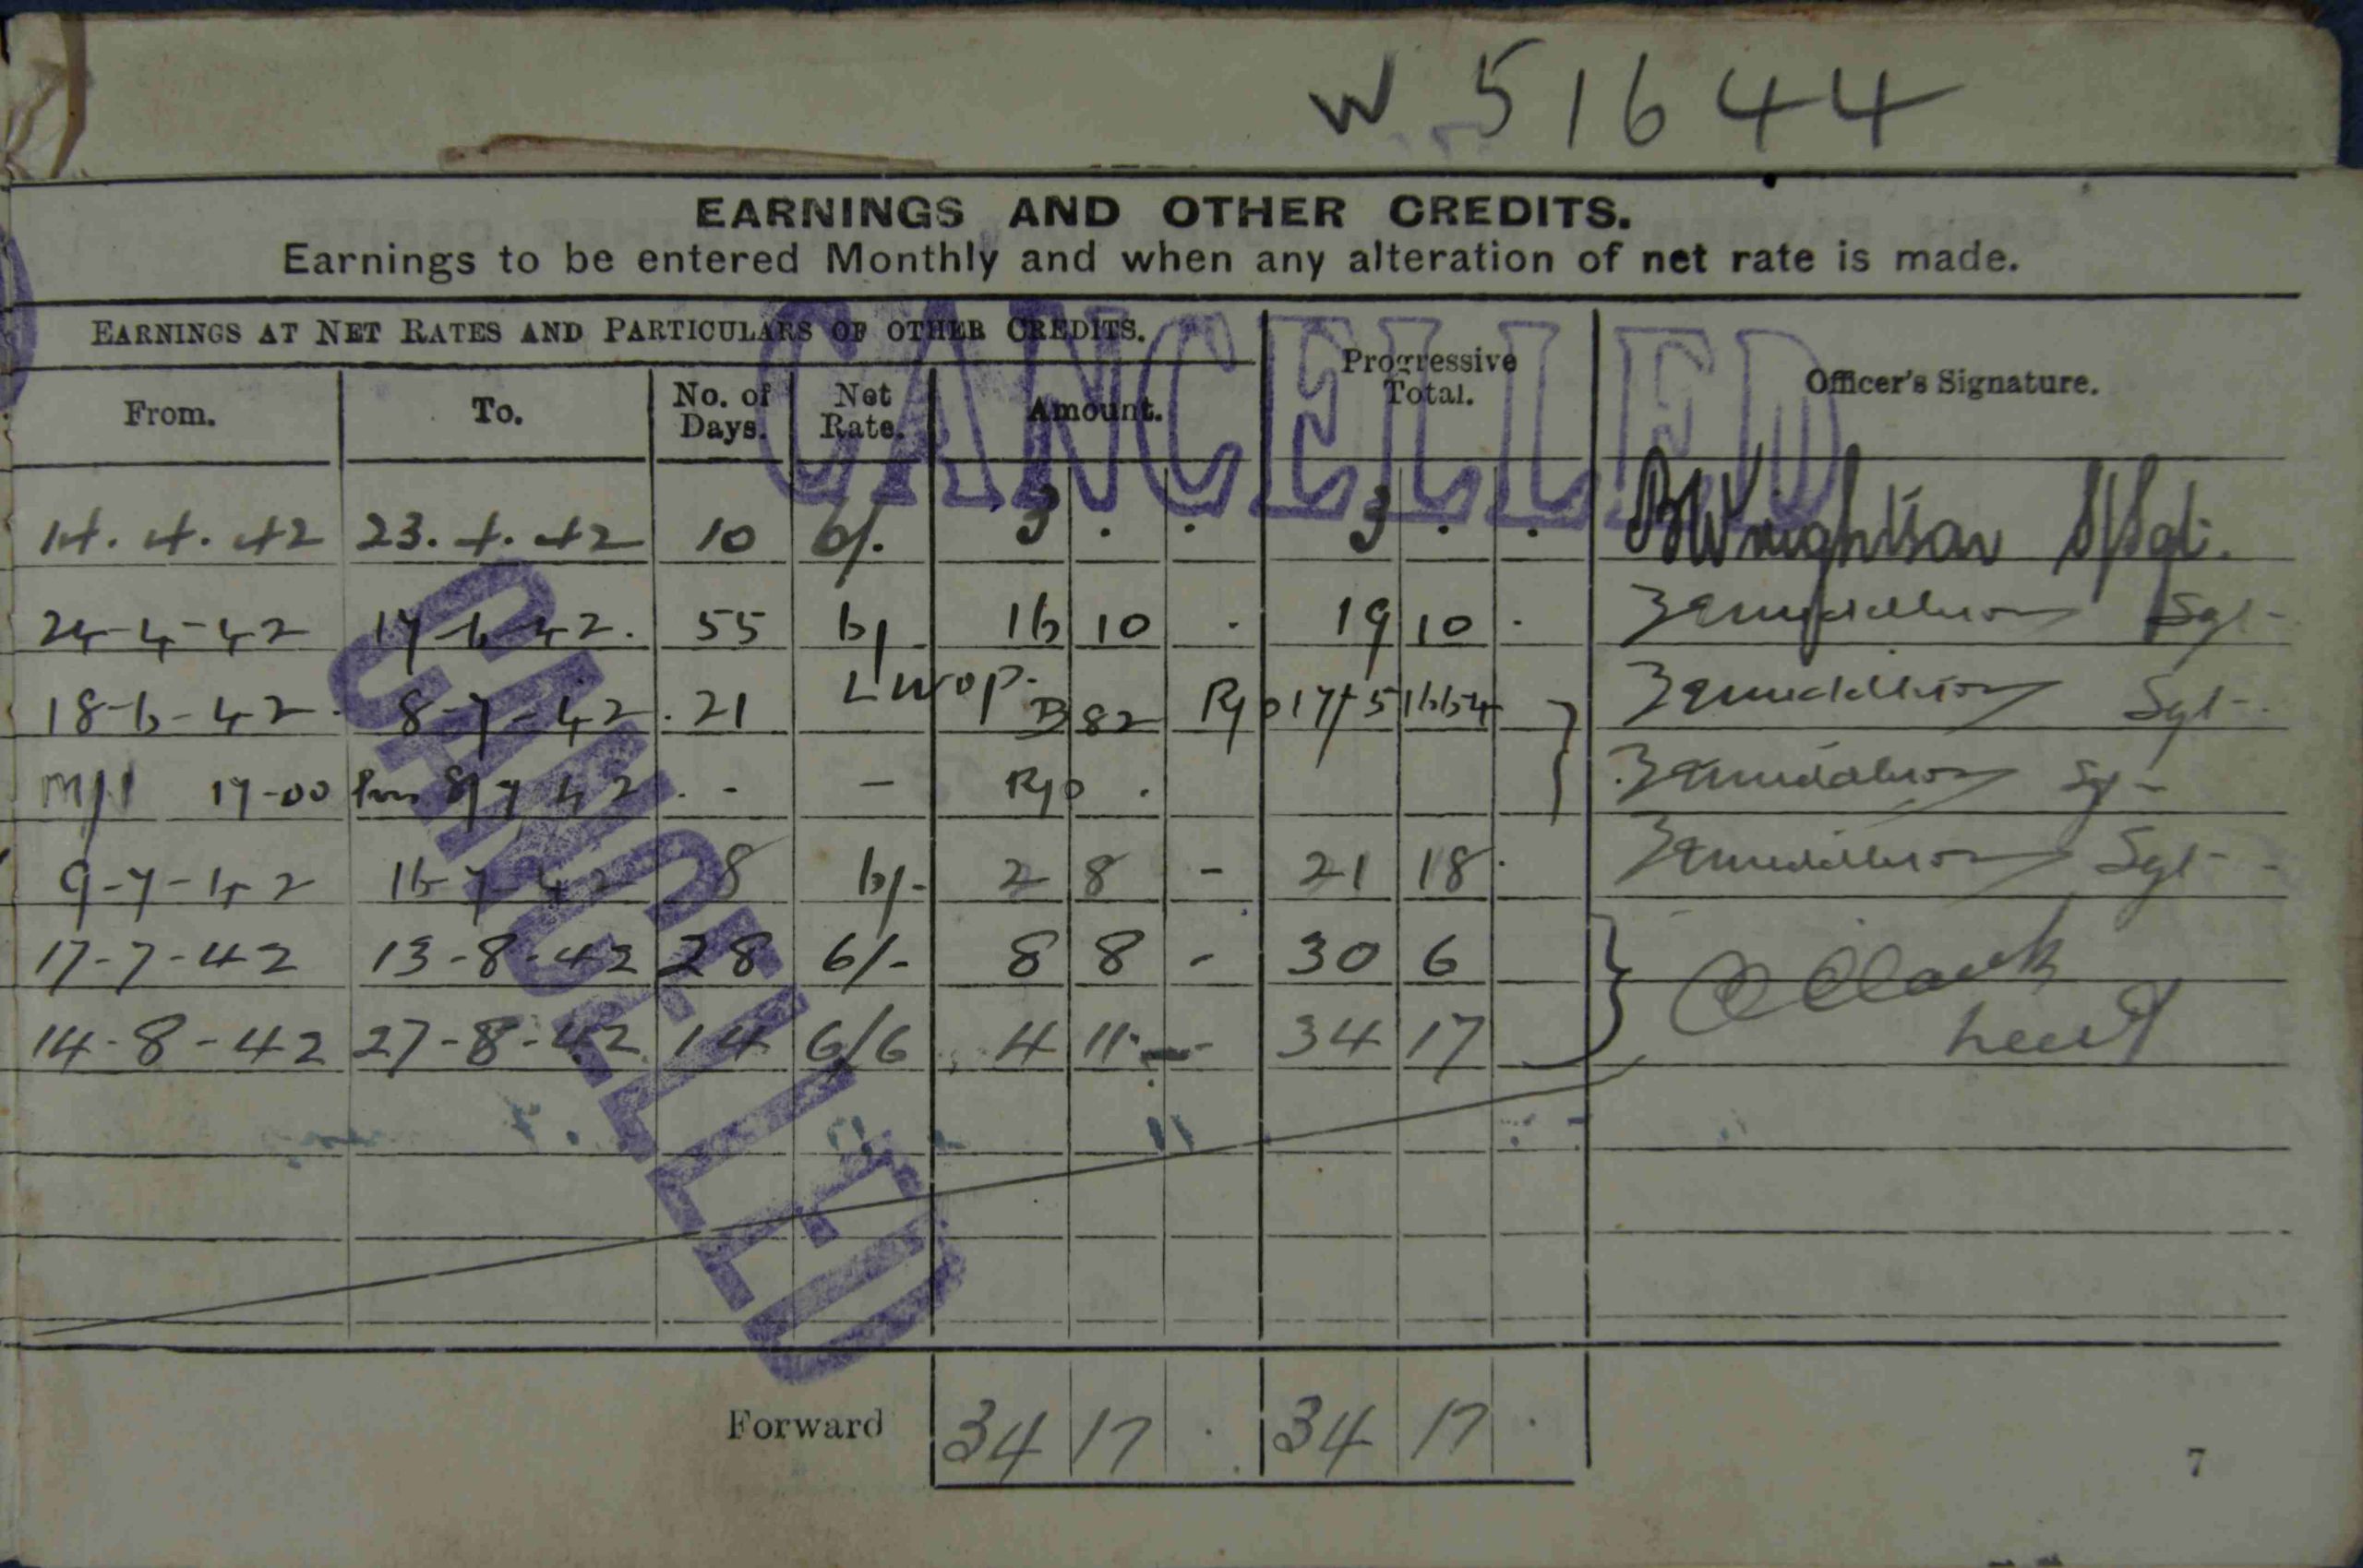 W 51644
EARNINGS AND OTHER CREDITS.
Earnings to be entered Monthly and when any alteration of net rate is made.
EARNINGS AT NET RATES AND PARTICULARS OF OTHER CREDITS.
From. To. No. of Days. Net Rate. Amount. Progressive Total. Officer's Signature.
CANCELLED
14.4.42 23.4.42 10 6/. 3 . . 3 . . S/Sgt.
24-4-42 17-6-42. 55 6/ 16 10 . 19 10 . Sgt-
18-6-42. 8-7-42. 21 LWOP. B 82 Sgt-
17-00 8/7 42 . - - Sgt-
9-7-42 16-7-42 8 6/- 2 8 - 21 18. Sgt-
17-7-42 13-8-42 28 6/- 8 8 - 30 6
14-8-42 27-8-42 14 6/6 4 11 - 34 17 Clark Lieut
CANCELLED
Forward 34 17 . 34 17 .
7